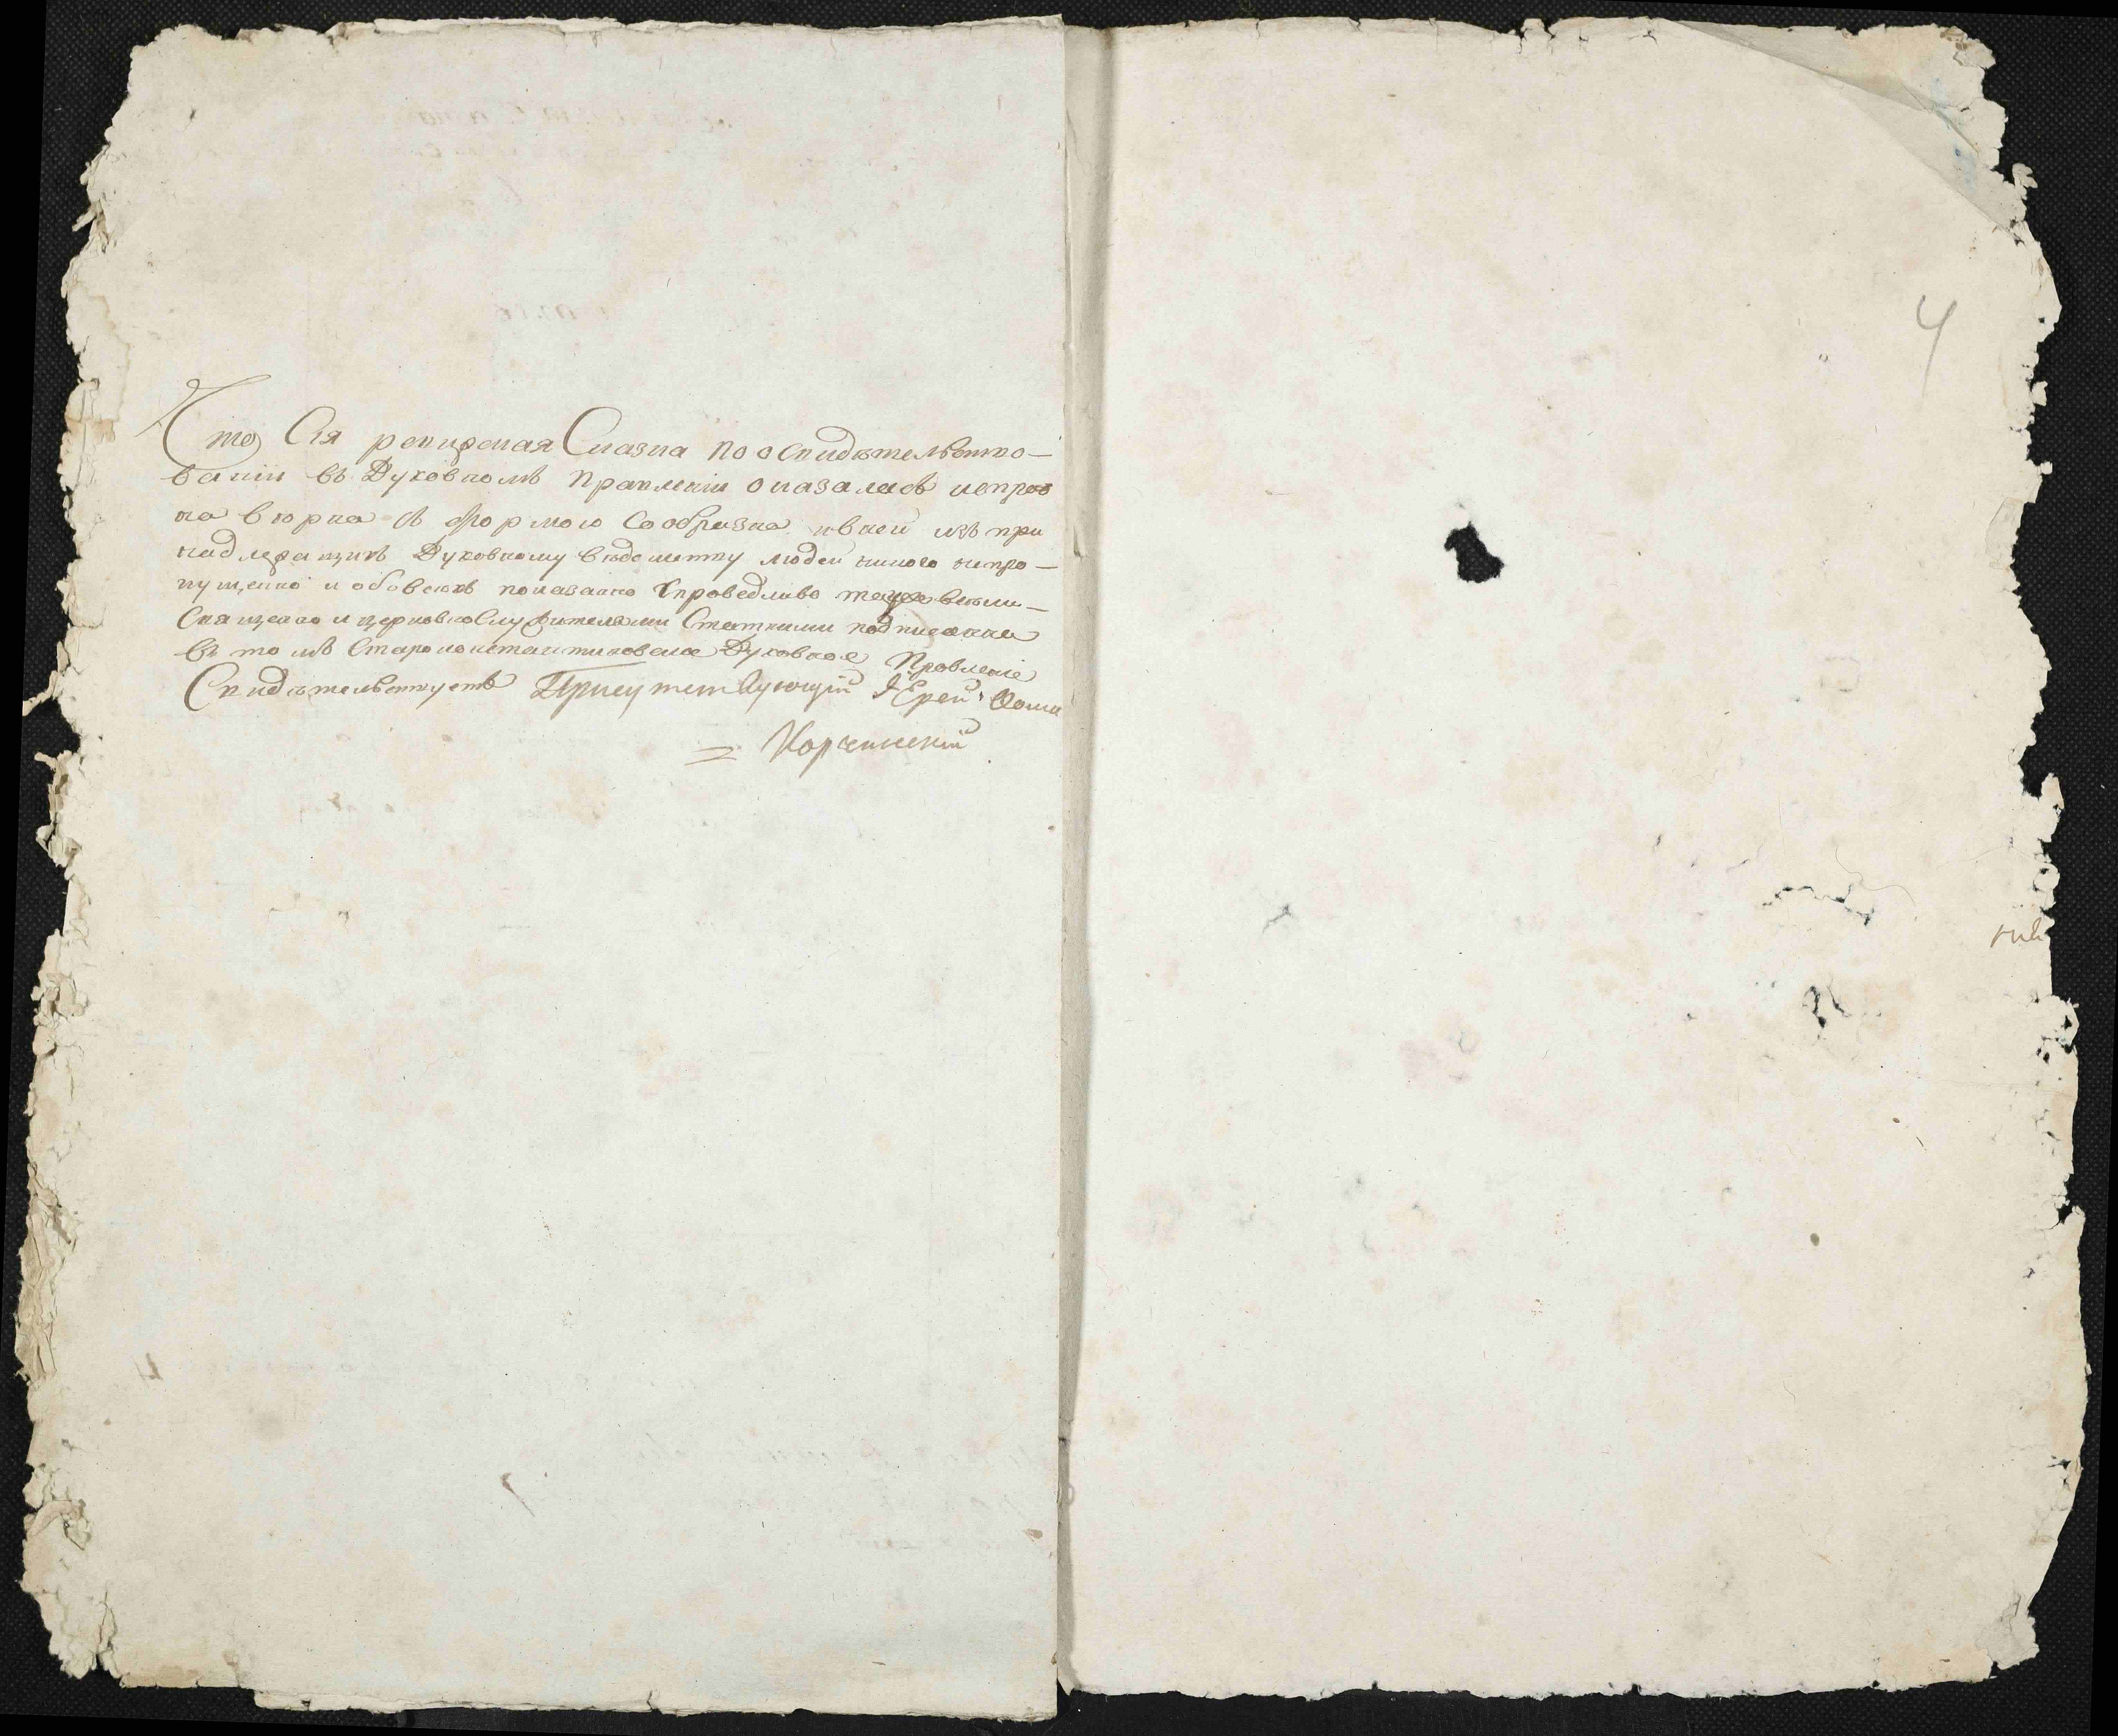 Что Сія ревизская Сказка по освидѣтельство—
ваніи въ Духовномъ Правленіи оказалась исправ
на вѣрна съ формою Сообразна и в ней изъ при
надлежащихъ Духовному вѣдомству людей никого непро—
пущенно и обо всехъ показанно Справедливо также всеми—
Священно и церковнослужителями Статними подписанна
въ томъ Староконстантиновское Духовное Правленіе
Свидѣтельствуетъ Присутствующій Іерей Фома
Корчинскій
4